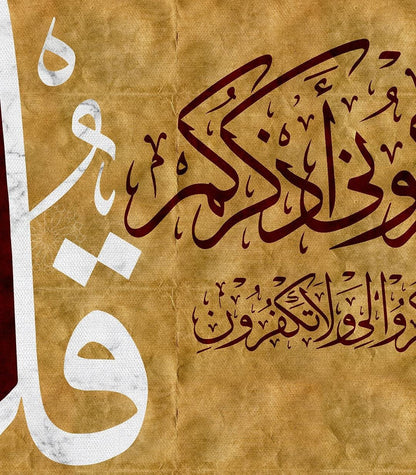 ونى أذكركم
كروا لى ولا تكفرون